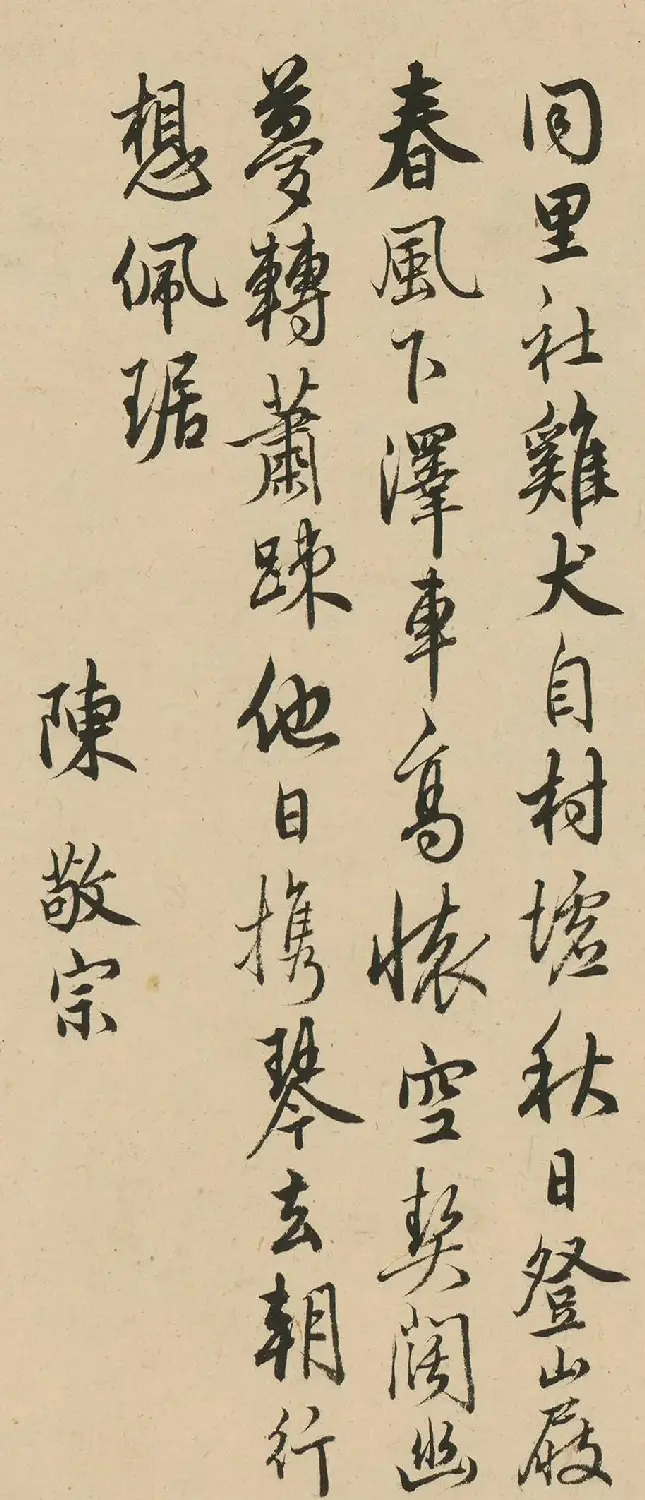 同里社雞犬自村墟秋日登山屐
春風下澤車高懷空契闊幽
夢轉蕭踈他日攜琴去朝行
想佩琚
陳敬宗